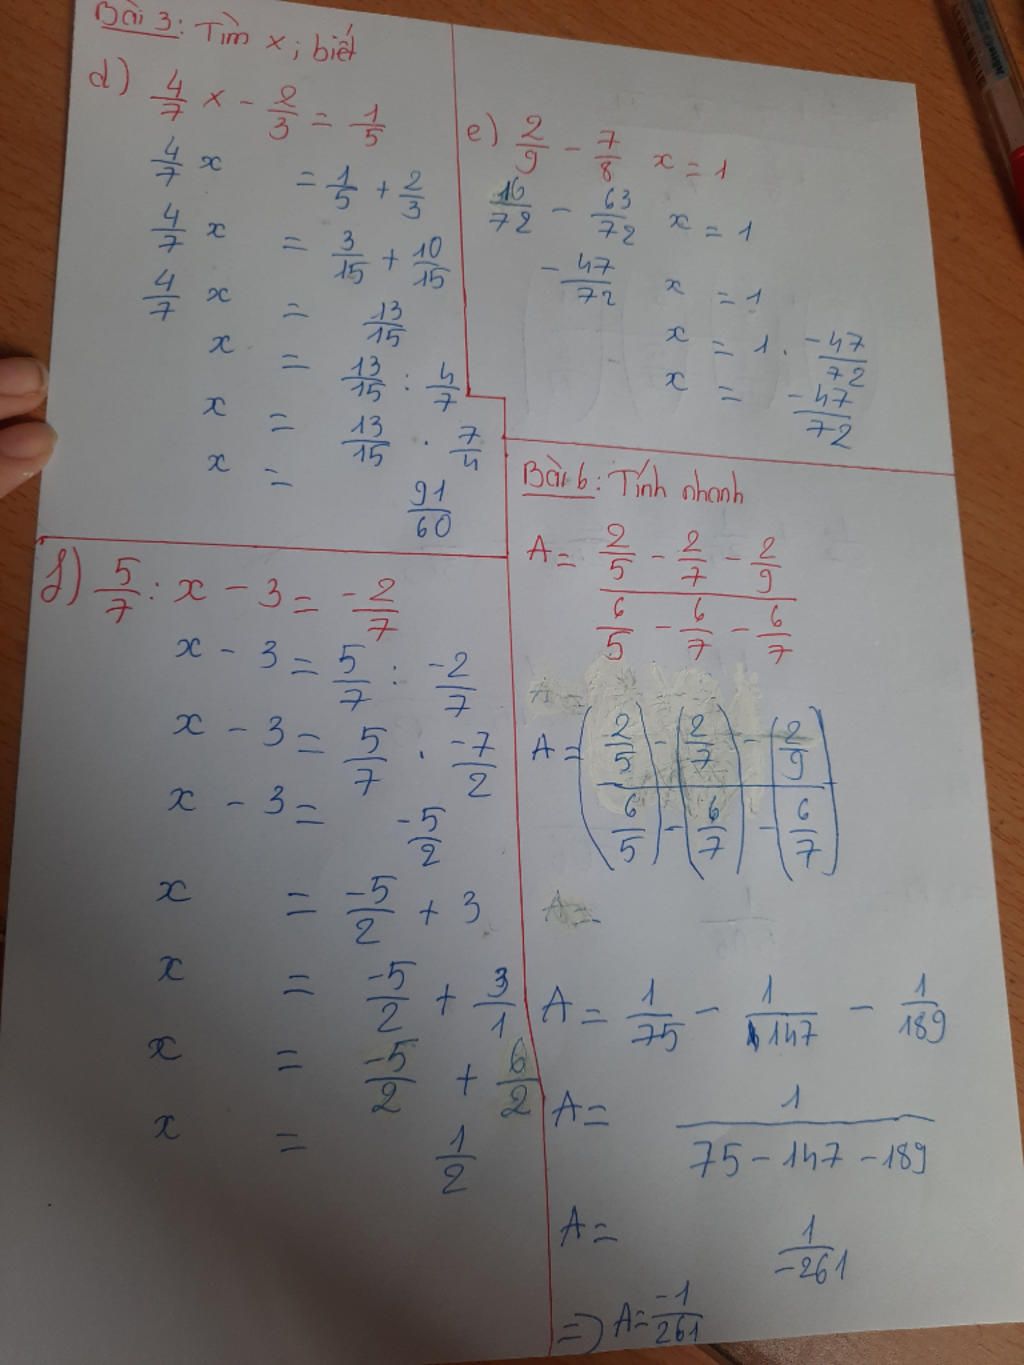 Bài 3: Tìm x, biết
d) 4/7 x - 2/3 = 1/5
4/7 x = 1/5 + 2/3
4/7 x = 3/15 + 10/15
4/7 x = 13/15
x = 13/15 : 4/7
x = 13/15 . 7/4
x = 91/60
e) 2/9 - 7/8 x = 1
16/72 - 63/72 x = 1
-47/72 x = 1
x = 1 . -47/72
x = -47/72
f) 5/7 : x - 3 = -2/7
x - 3 = 5/7 : -2/7
x - 3 = 5/7 . -7/2
x - 3 = -5/2
x = -5/2 + 3
x = -5/2 + 3/1
x = -5/2 + 6/2
x = 1/2
Bài 6: Tính nhanh
A = (2/5 - 2/7 - 2/9) / (6/5 - 6/7 - 6/7)
A = (2/5 / 6/5) - (2/7 / 6/7) - (2/9 / 6/7)
A =
A = 1/75 - 1/147 - 1/189
A = 1/(75 - 147 - 189)
A = 1/-261
=> A = -1/261